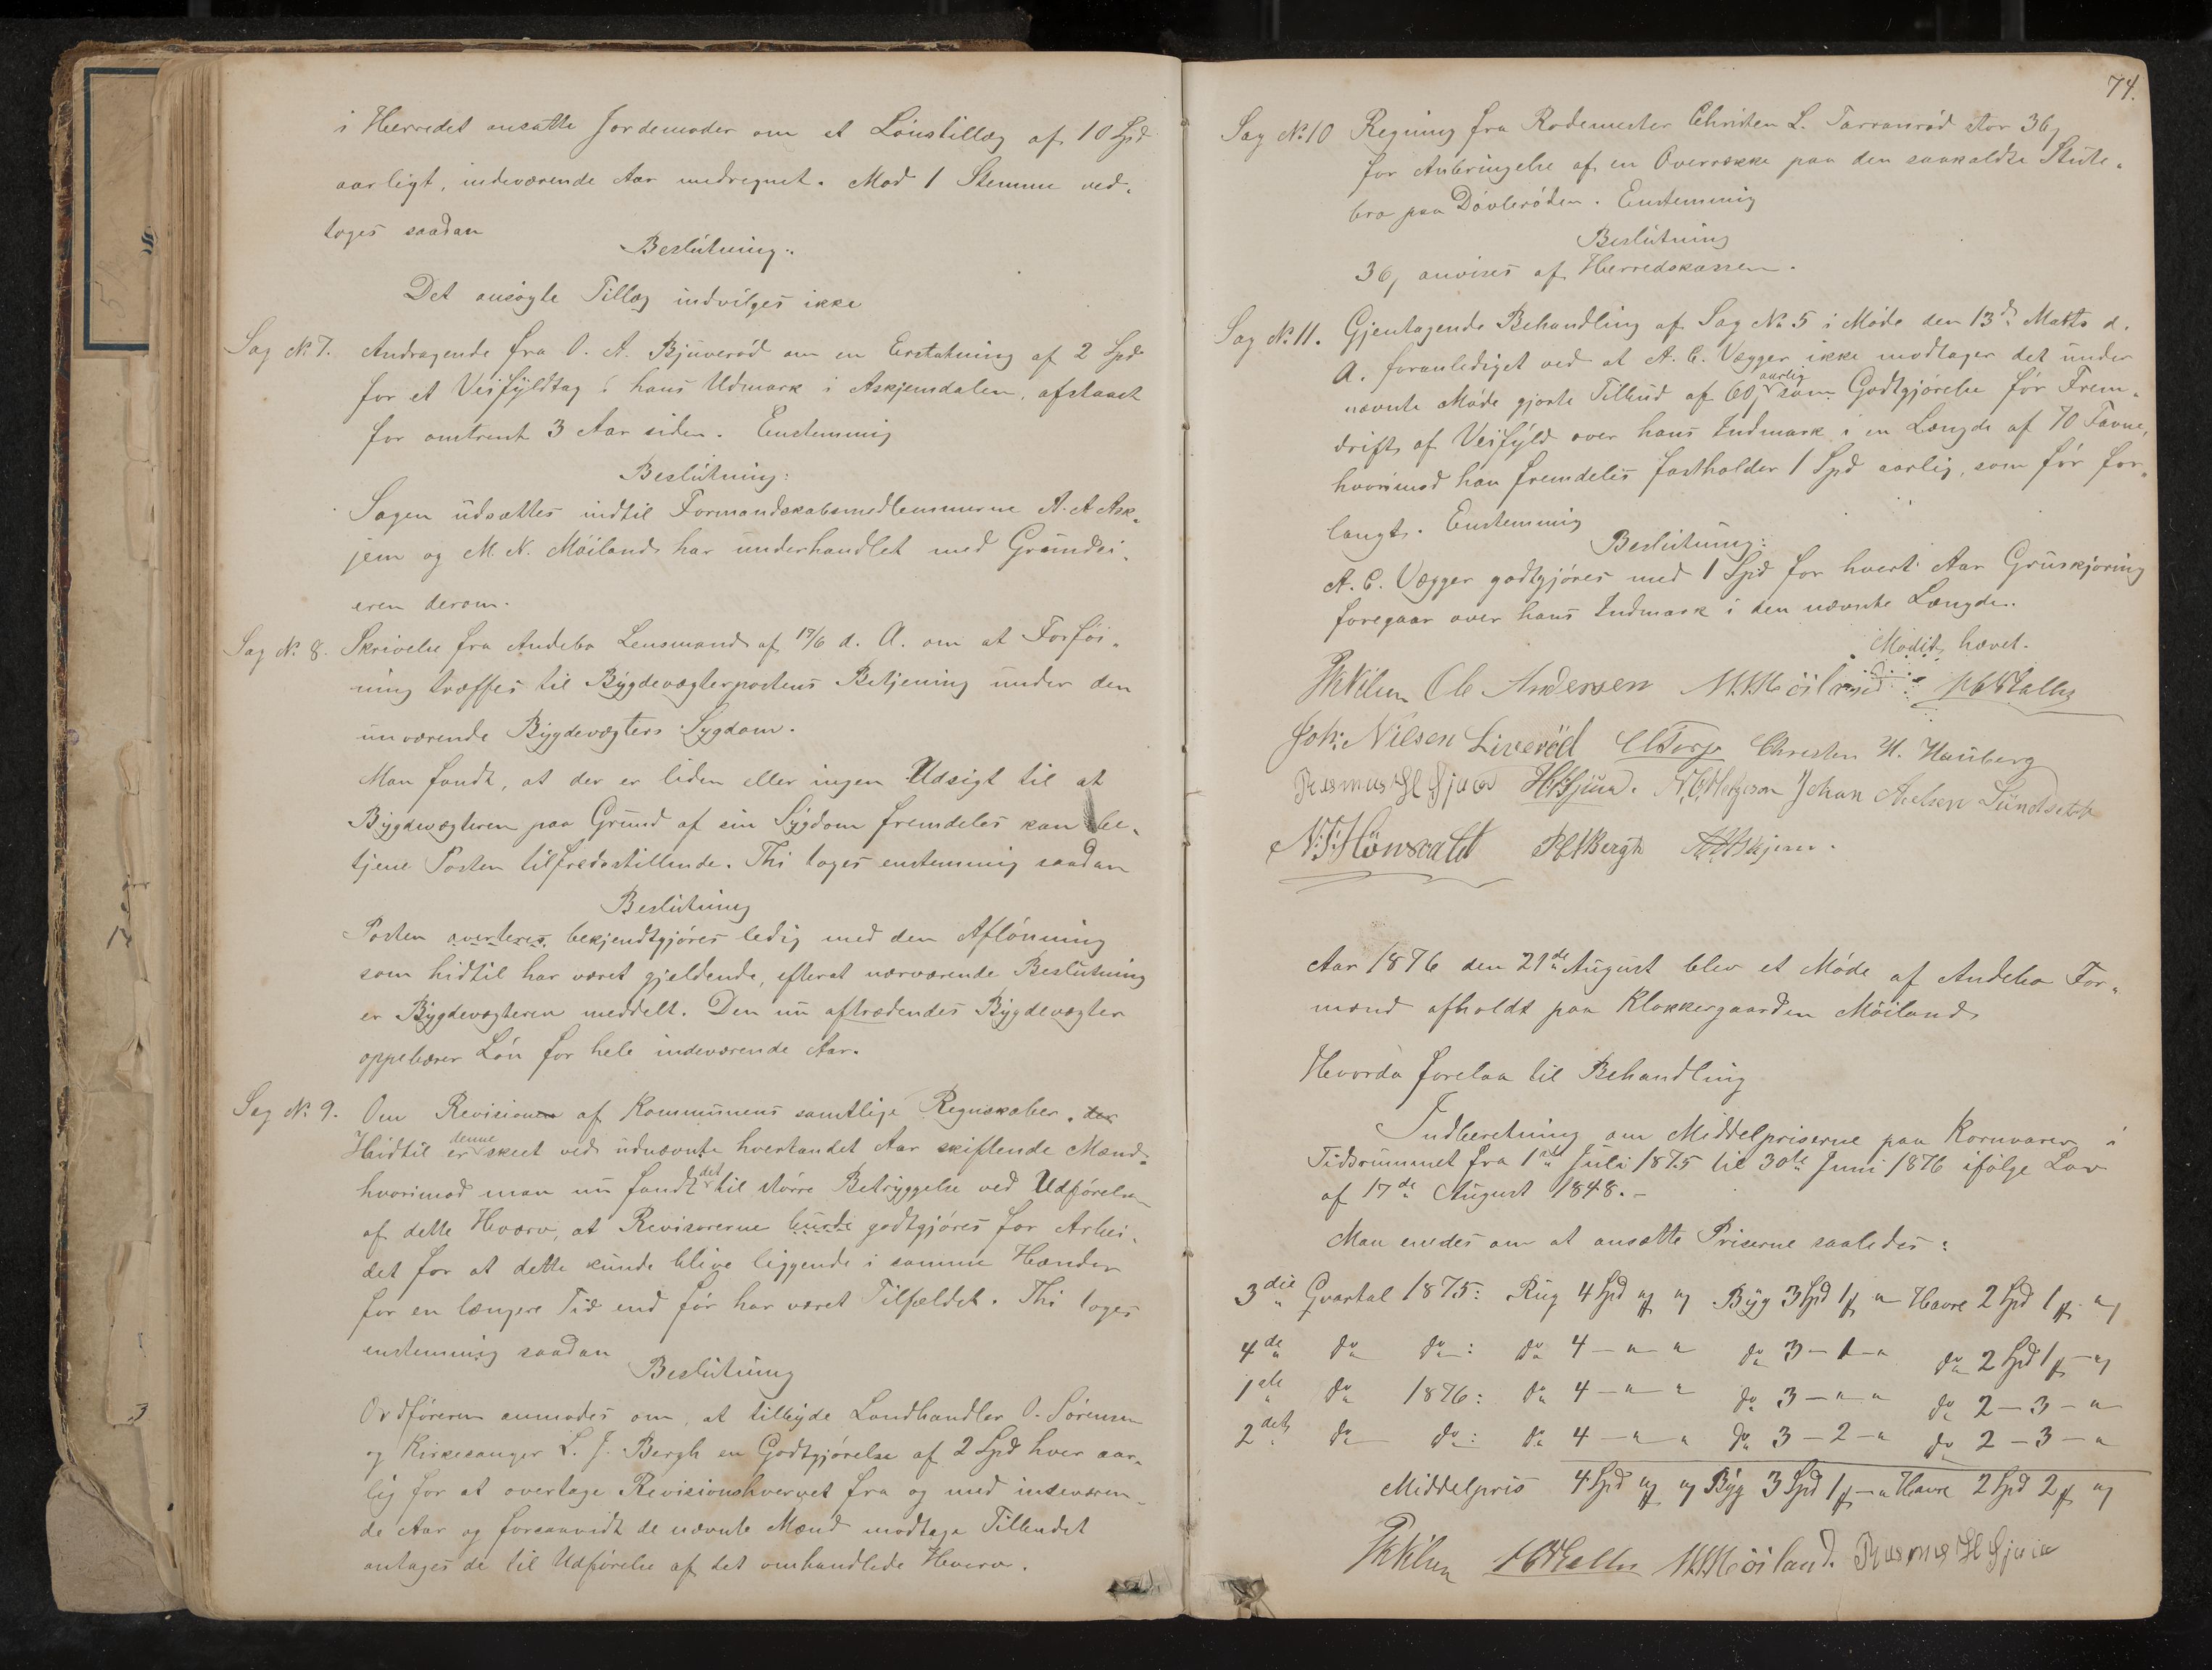 i Herredet ansatte Jordemoder om et Lönstillæg af 10 Spd
aarligt, indeværende Aar medregnet. Mod 1 Stemme ved-
toges saadan
Beslutning:
Det ansögte Tillæg indvilges ikke
Sag No 7. Andragende fra O. A. Bjuveröd om en Erstatning af 2 Spd
for et Veifyldtag i hans Udmark i Askjemdalen, afstaaet
for omtrent 3 Aar siden. Enstemmig
Beslutning:
Sagen udsættes indtil Formandskabsmedlemmerne A. A. Ask-
jem og M. N. Möiland har underhandlet med Grundei-
eren derom.
Sag No 8. Skrivelse fra Andebo Lensmand af 17/6 d. A. om at Forföi-
ning træffes til Bygdevægterpostens Betjening under den
nuværende Bygdevægters Sygdom.
Man fandt, at der er liden eller ingen Udsigt til at
Bygdevægteren paa Grund af sin Sygdom fremdeles kan be-
tjene Posten tilfredsstillende. Thi toges enstemmig saadan
Beslutning
Posten averteres bekjendtgjöres ledig med den Aflönning
som hidtil har været gjeldende, efterat nærværende Beslutning
er Bygdevægteren meddelt. Den nu aftrædendes Bygdevægter
oppebærer Lön for hele indeværende Aar.
Sag No 9. Om Revisionen af Kommunens samtlige Regnskaber. der
denne
Hidtil er skeet ved udnævnte hvertandet Aar skiftende Mænd-
det
hvorimod man nu fandt til större Betryggelse ved Udförelsen
af dette Hværv, at Revisorerne burde godtgjöres for Arbei-
det for at dette kunde blive liggende i samme Hænder
for en længere Tid end för har været Tilfældet. Thi toges
enstemmig saadan
Beslutning
Ordföreren anmodes om, at tilbyde Landhandler O. Sörensen
og Kirkesanger L. J. Bergh en Godtgjörelse af 2 Spd hver aar-
lig for at overtage Revisionshvervet fra og med indeværen-
de Aar og forsaavidt de nævnte Mænd modtage Tilbudet
antages de til Udförelse af det omhandlede Hverv.
74.
Sag No 10 Regning fra Rodemester Christen L. Tarranröd stor 36
for Anbringelse af en Overrække paa den saakaldte Stute-
bro paa Dövleröden. Enstemmig
Beslutning
36 anvises af Herredskassen.
Sag No 11. Gjentagende Behandling af Sag No 5 i Möde den 13de Marts d.
A. foranlediget ved at A. C. Vegger ikke modtager det under
aarlig
nævnte Möde gjorte Tilbud af 60 som Godtgjörelse för Frem-
drift af Veifyld over hans Indmark i en Længde af 70 Favne,
hvorimod han fremdeles fastholder 1 Spd aarlig, som för for-
langt. Enstemmig
Beslutning:
A. C. Vegger godtgjöres med 1 Spd for hvert Aar Gruskjöring
foregaar over hans Indmark i den nævnte Længde.
Mödet hævet.
Ole Andersen M. N. Möiland
Joh: Nilsen Liveröd Christen H. Hauberg
Rasmus H Gjein Johan Axelsen Sundseth
L J Bergh A A Askjem.
Aar 1876 den 21de August blev et Möde af Andebo For-
mænd afholdt paa Klokkergaarden Möiland
Hvorda forelaa til Behandling
Indberetning om Middelpriserne paa Kornvarer i
Tidsrummet fra 1ste Juli 1875 til 30te Juni 1876 ifölge Lov
af 17de August 1848. -
Man enedes om at ansætte Priserne saaledes:
3die Qvartal 1875: Rug 4 Spd " " Byg 3 Spd 1 " Havre 2 Spd 1 "
4de do do: do 4 - " - " do 3 - 1 - " do 2 Spd 1 - "
1ste do 1876: do 4 - " - " do 3 - " - " do 2 - 3 - "
2det do do: do 4 - " - " do 3 - 2 - " do 2 - 3 - "
Middelpris 4 Spd " " Byg 3 Spd 1 - " Havre 2 Spd 2 "
M. N. Möiland. Rasmus H Gjein